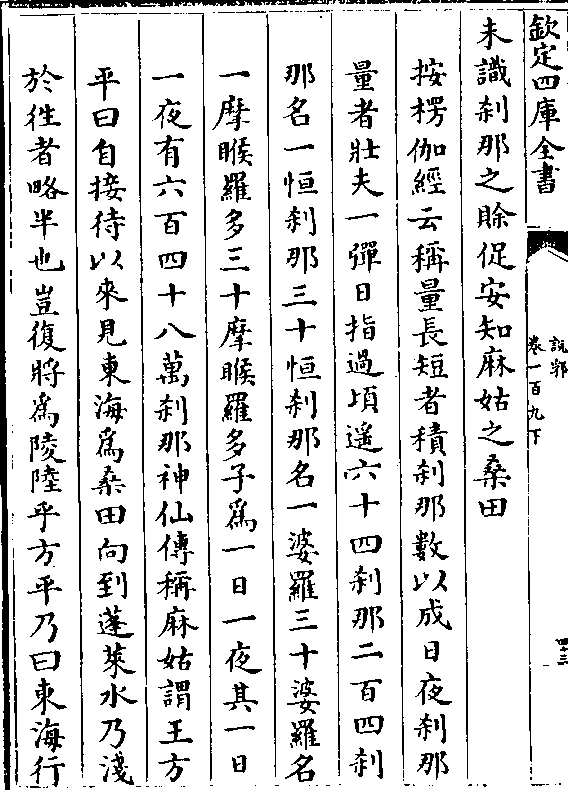 欽定四庫全書
說郛
卷一百九下
四十三
未識刹那之賒促安知麻姑之桑田
按楞伽經云稱量長短者積刹那數以成日夜刹那
量者壯夫一彈日指過頃遥六十四刹那二百四刹
那名一恒刹那三十恒刹那名一婆羅三十婆羅名
一摩睺羅多三十摩睺羅多子為一日一夜其一日
一夜有六百四十八萬刹那神仙傳稱麻姑謂王方
平曰自接待以來見東海為桑田向到蓬萊水乃淺
於徃者略半也豈復將為陵陸乎方平乃曰東海行